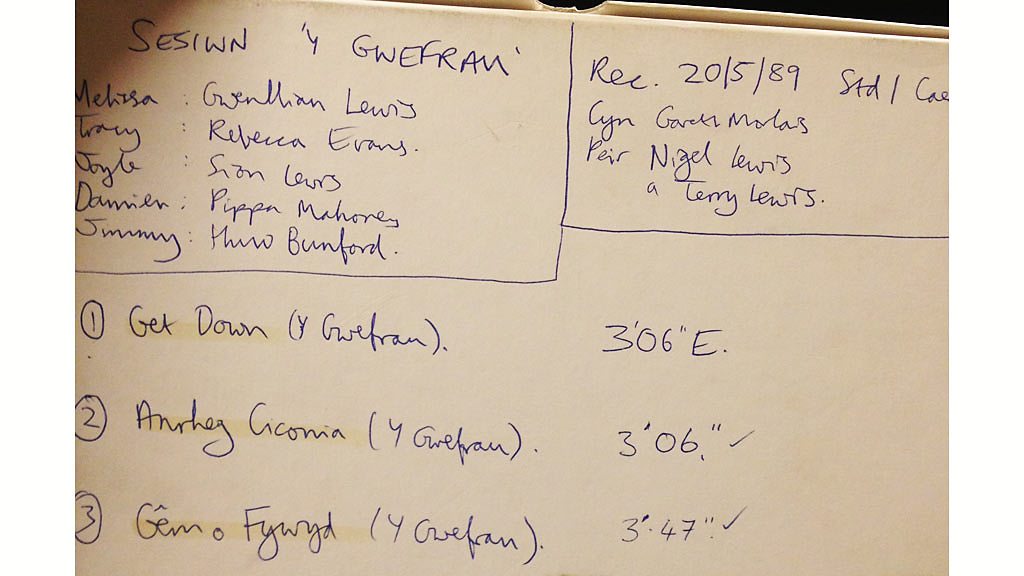 SESIWN 'Y GWEFRAU'
Melissa : Gwenllian Lewis
Tracy : Rebecca Evans.
Joyle : Siôn Lewis
Damien : Pippa Mahoney
Jimmy : Huw Bunford.
Rec. 20/5/89 Std 1 Cae
Cyn Gareth Morlais
Peir Nigel Lewis
a Terry Lewis.
① Get Down (Y Gwefrau). 3'06" E.
② Anrheg Ciconia (Y Gwefrau). 3'06." ✓
③ Gêm o Fywyd (Y Gwefrau). 3'.47". ✓